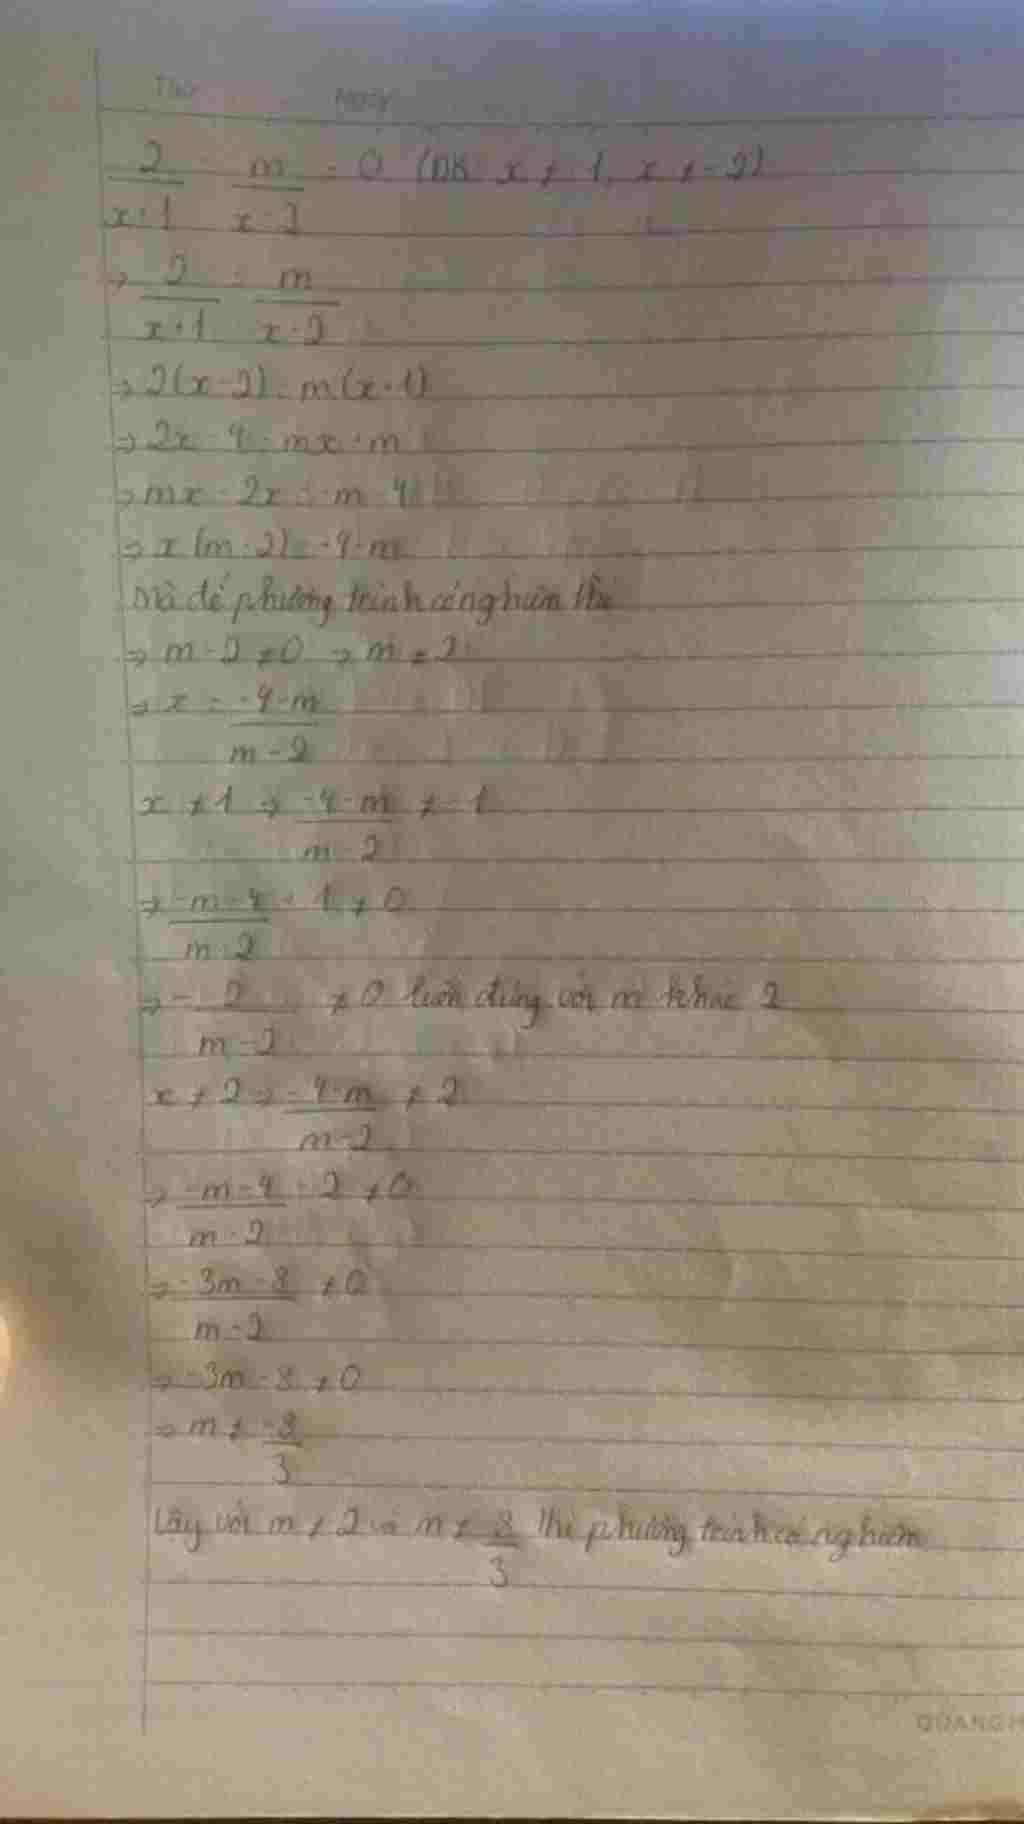 Thứ Ngày
2/(x+1) - m/(x-2) = 0 (ĐK: x ≠ -1, x ≠ -2)
⇒ 2/(x+1) = m/(x-2)
⇒ 2(x-2) = m(x+1)
⇒ 2x-4 = mx+m
⇒ mx-2x = -m-4
⇒ x(m-2) = -4-m
Mà để phương trình có nghiệm thì
⇒ m-2 ≠ 0 ⇒ m ≠ 2
⇒ x = (-4-m)/(m-2)
x ≠ -1 ⇒ (-4-m)/(m-2) ≠ -1
⇒ (-m-4)/(m-2) + 1 ≠ 0
⇒ - 2/(m-2) ≠ 0 luôn đúng với m khác 2
x ≠ 2 ⇒ (-4-m)/(m-2) ≠ 2
⇒ (-m-4)/(m-2) - 2 ≠ 0
⇒ (-3m-8)/(m-2) ≠ 0
⇒ -3m-8 ≠ 0
⇒ m ≠ -8/3
Vậy với m ≠ 2 và m ≠ 8/3 thì phương trình có nghiệm